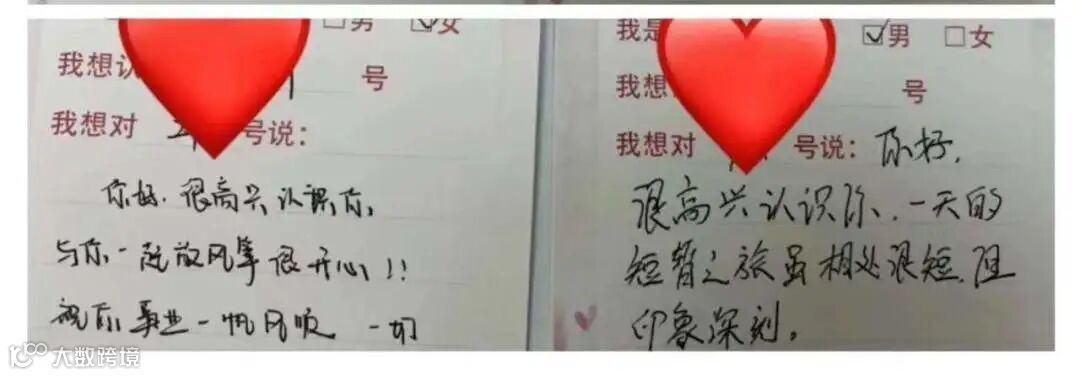 男 ☑女
我想认 号
我想对 号说：
你好.很高兴认识你,
与你一起放风筝很开心!!
祝你事业一帆风顺 一切
我是 ☑男 □女
我想 号
我想对 号说：你好,
很高兴认识你,一天的
短暂之旅虽相处很短,但
印象深刻。
大数跨境